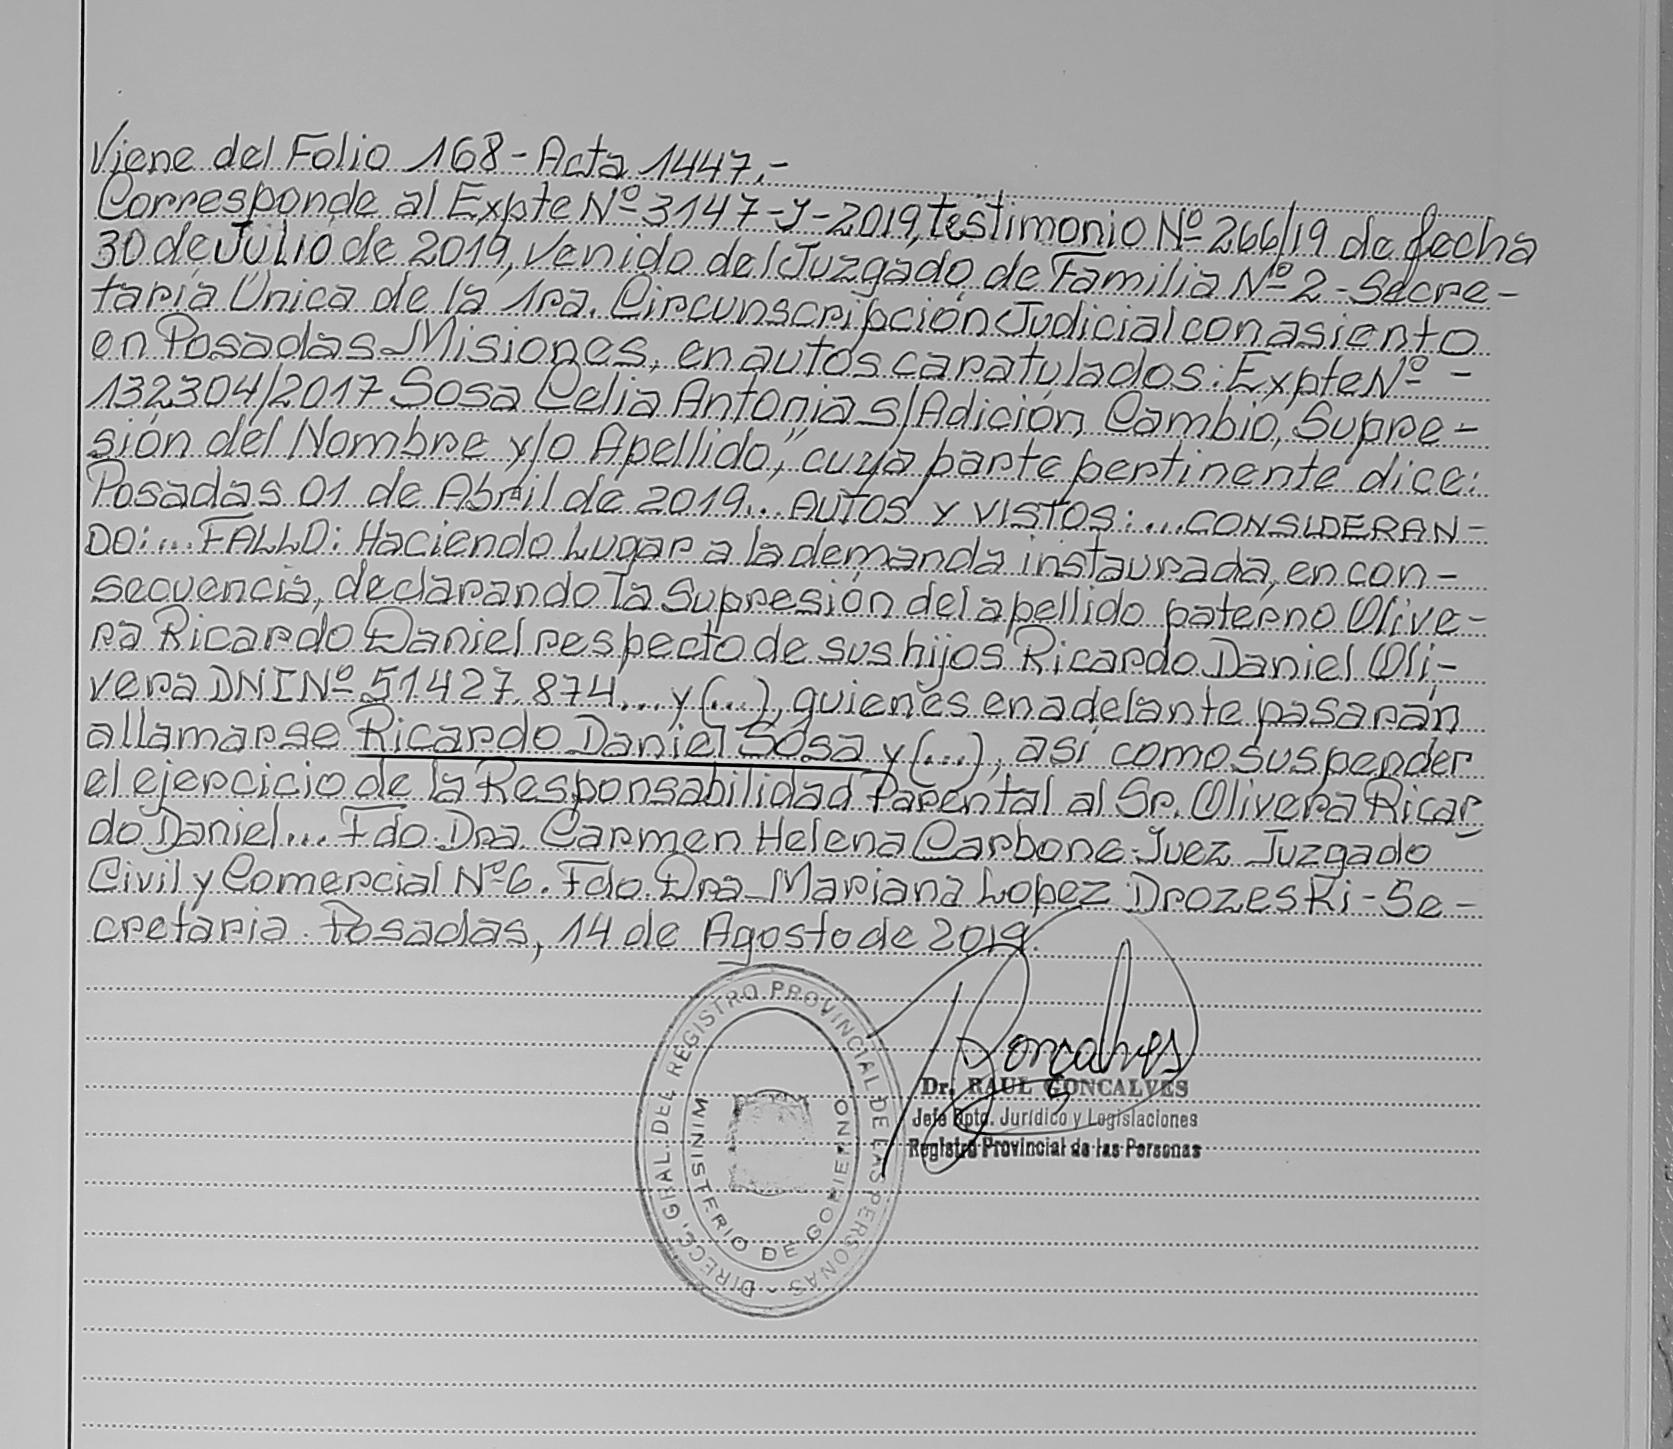 Viene del Folio 168 - Acta 1447.-
Corresponde al Expte Nº 3147-J-2019, testimonio Nº 266/19 de fecha
30 de Julio de 2019, venido del Juzgado de Familia Nº 2 - Secre-
taria Única de la 1ra. Circunscripción Judicial con asiento
en Posadas Misiones, en autos caratulados: Expte Nº -
132304/2017 Sosa Celia Antonia s/Adición, Cambio, Supre-
sión del Nombre y/o Apellido", cuya parte pertinente dice:
Posadas 01 de Abril de 2019... AUTOS Y VISTOS:... CONSIDERAN-
DO:... FALLO: Haciendo Lugar a la demanda instaurada, en con-
secuencia, declarando la Supresión del apellido paterno Olive-
ra Ricardo Daniel respecto de sus hijos Ricardo Daniel Oli-
vera DNI Nº 51.427.874... y (...), quienes en adelante pasarán
a llamarse Ricardo Daniel Sosa y (...), así como suspender
el ejercicio de la Responsabilidad Parental al Sr. Olivera Ricar
do Daniel... Fdo. Dra. Carmen Helena Carbone. Juez Juzgado
Civil y Comercial Nº 6. Fdo. Dra. Mariana Lopez Drozeski - Se-
cretaria. Posadas, 14 de Agosto de 2019.
DIRECC. GRAL. DEL REGISTRO PROVINCIAL DE LAS PERSONAS -
MINISTERIO DE GOBIERNO
Gonçalves
Dr. RAUL GONCALVES
Jefe Dpto. Jurídico y Legislaciones
Registro Provincial de las Personas